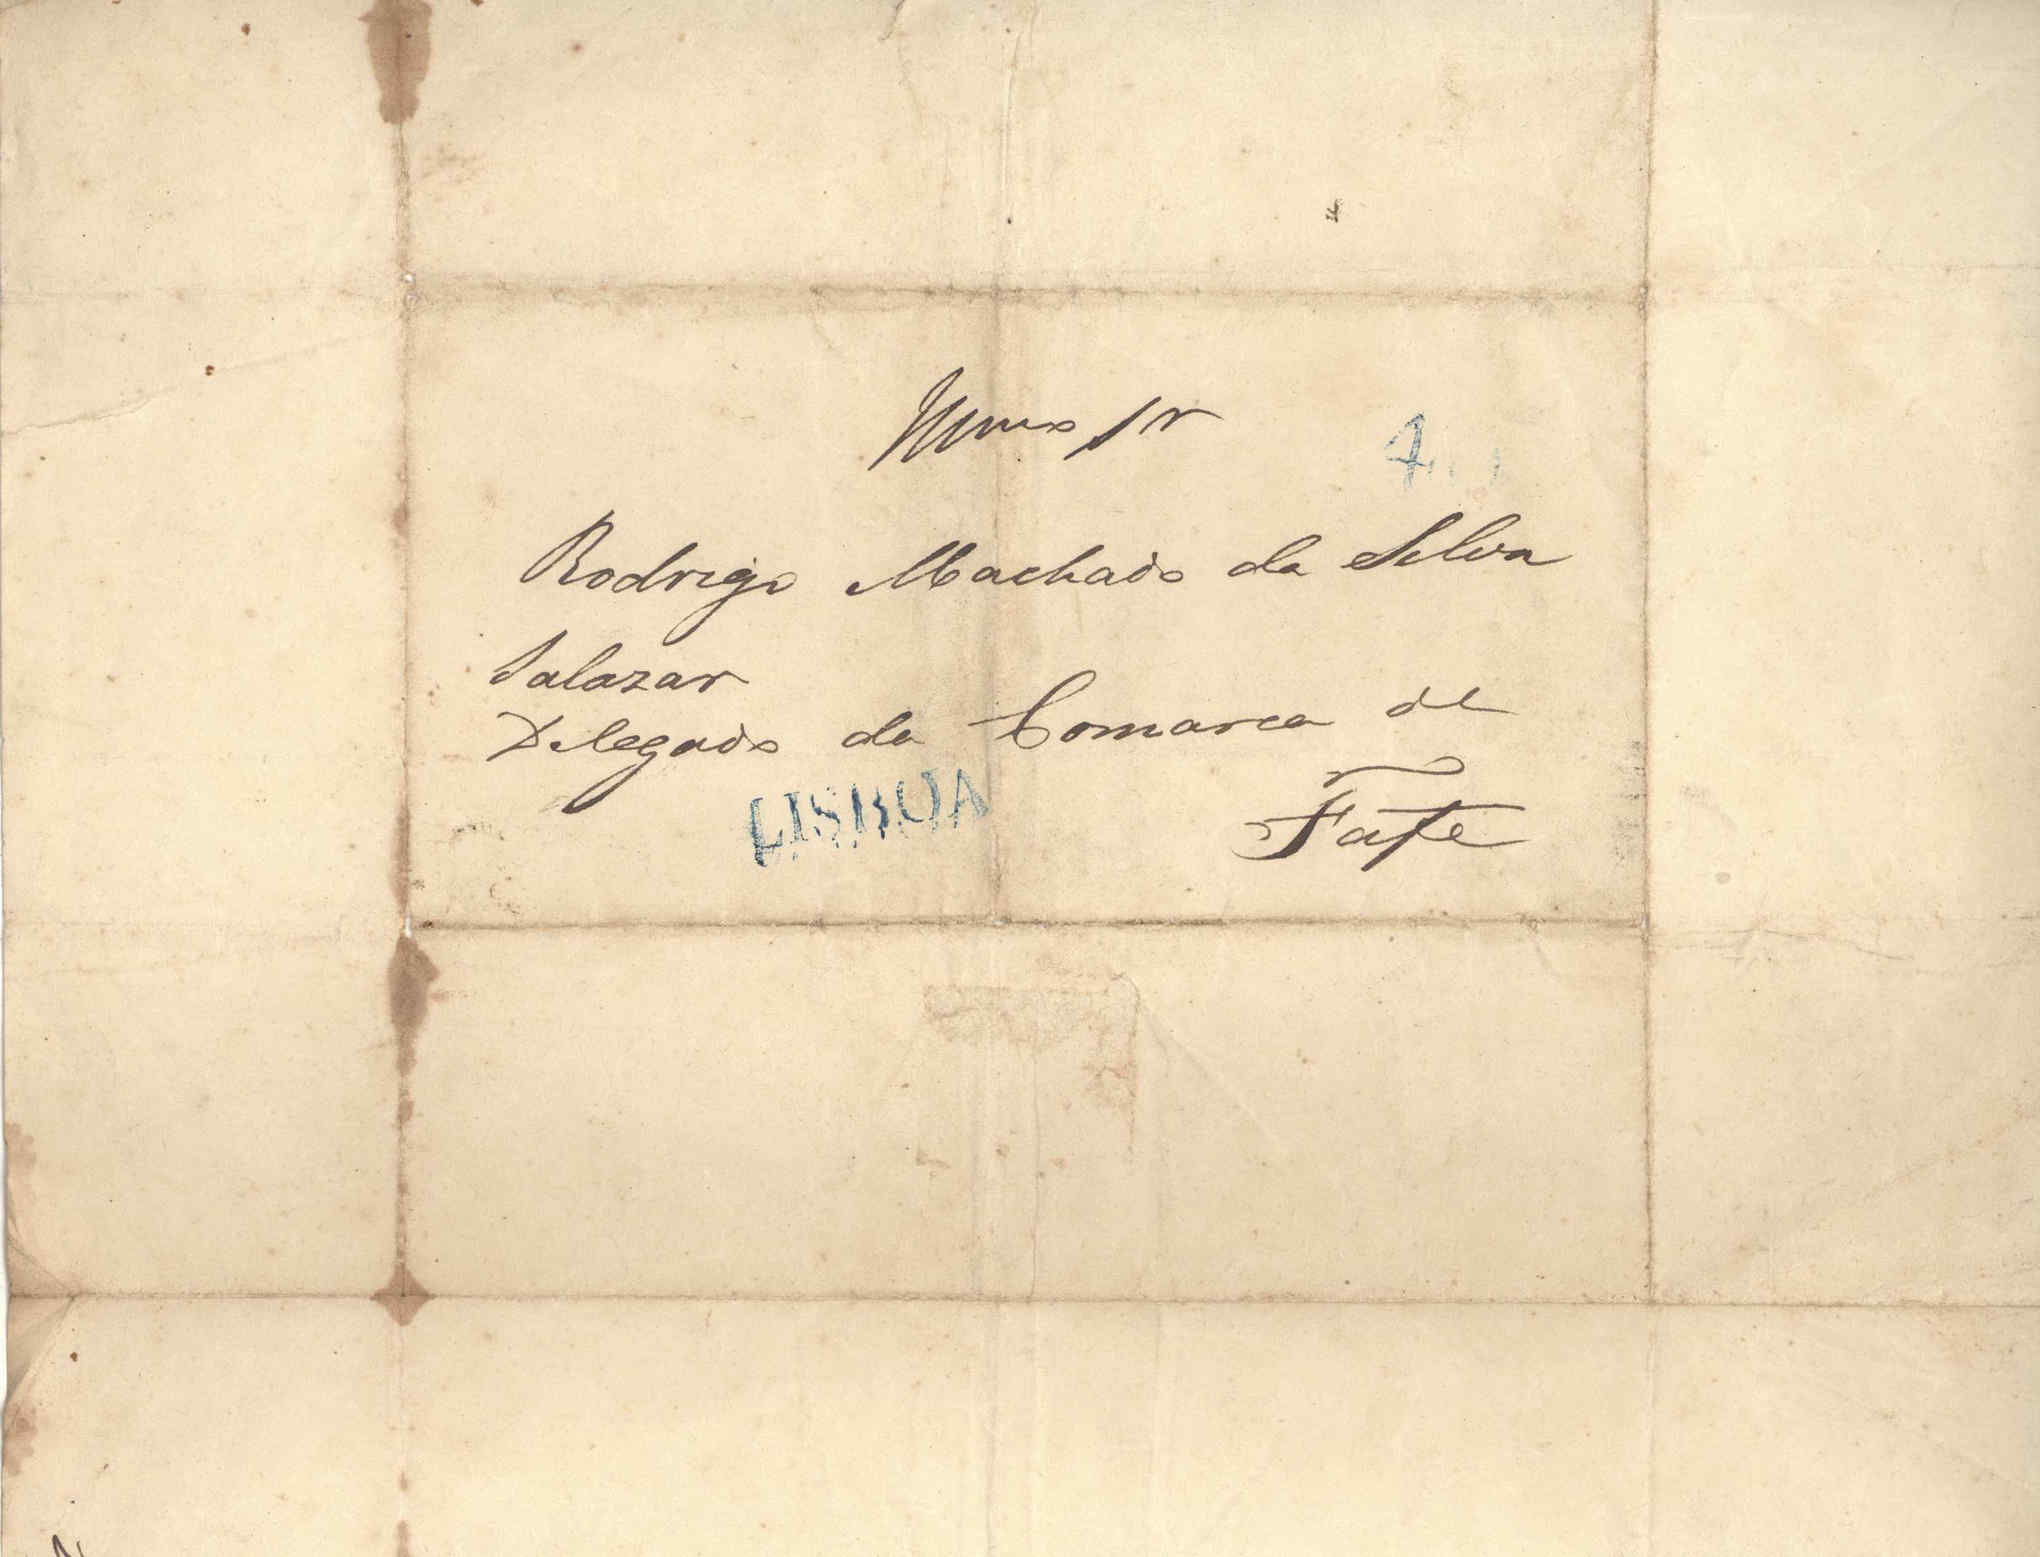 Illmo Sr
Rodrigo Machado da Silva
Salazar
Delegado da Comarca de
LISBOA
Fafe